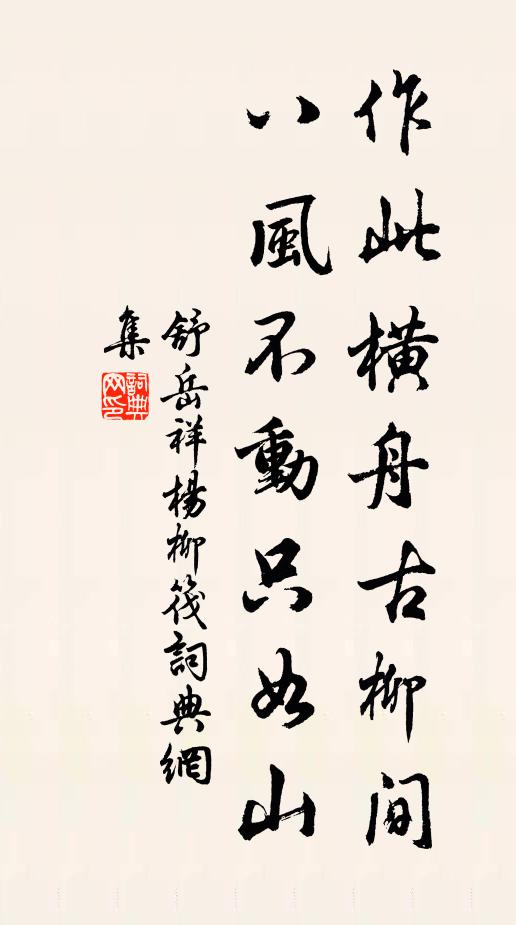 作此橫舟古柳間
八風不動只如山
舒岳祥楊柳筏詞典網
集
詞典
网印